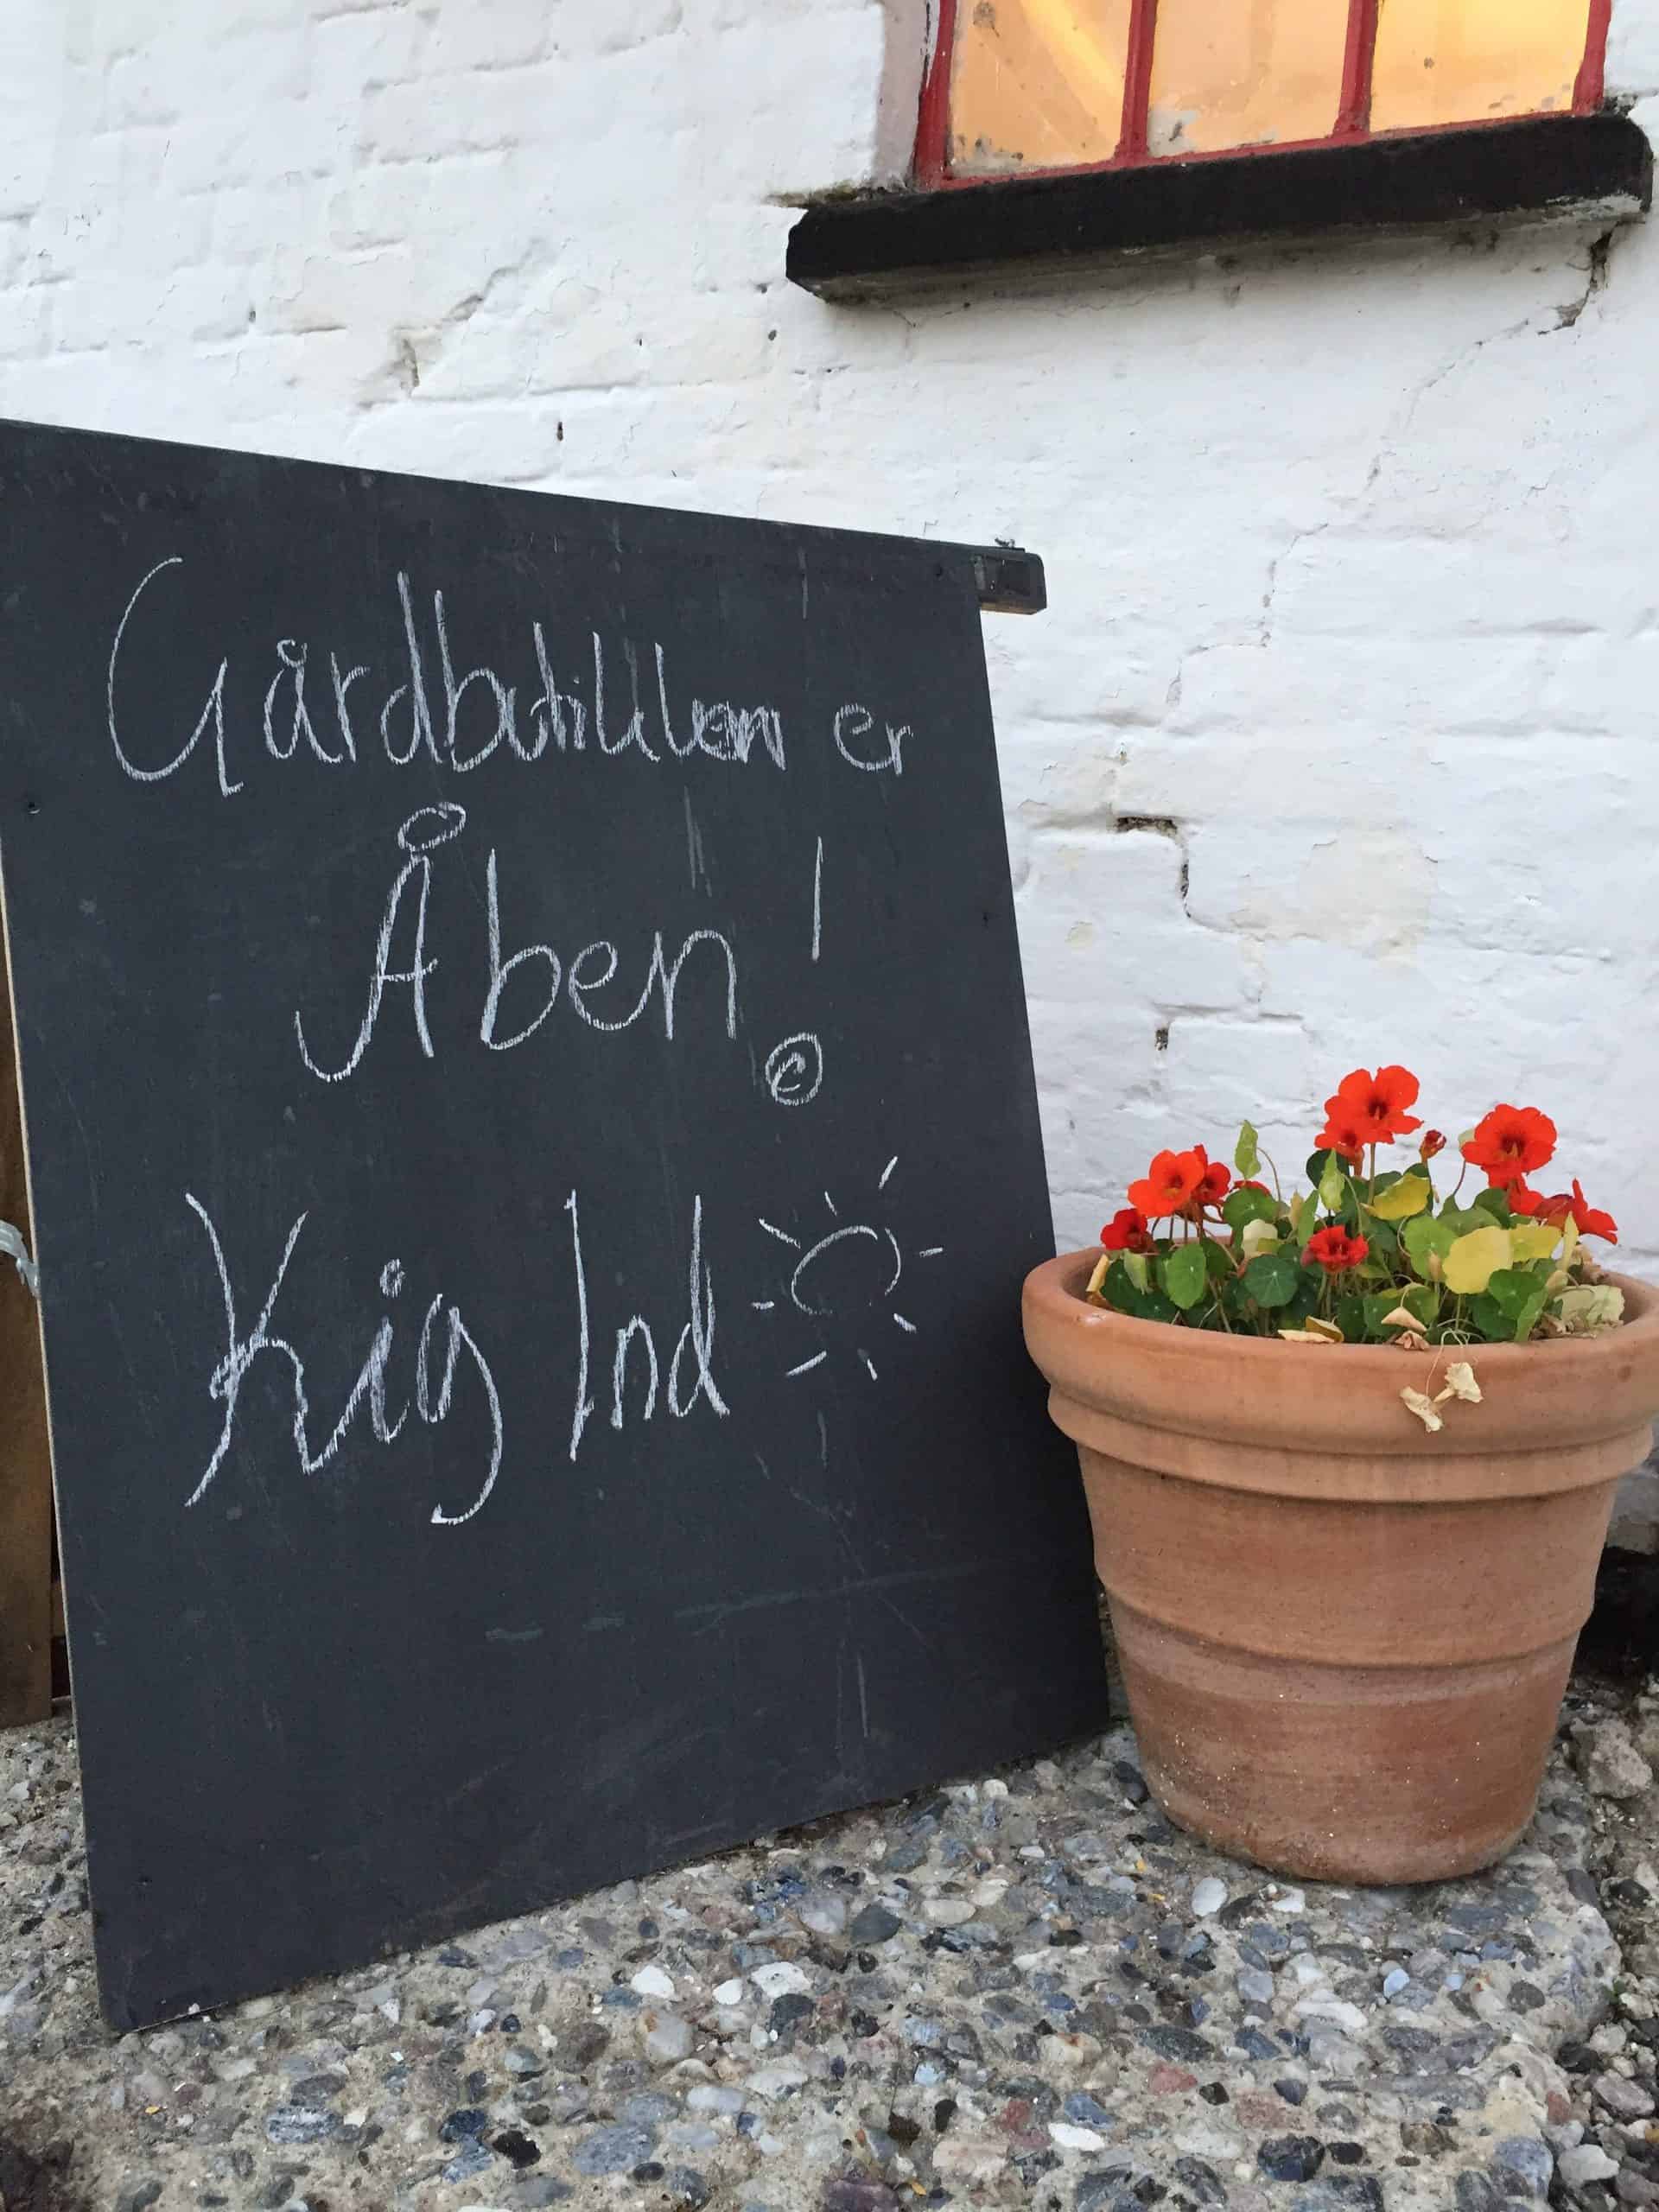 Gårdbutikken er
Åben!
Kig Ind